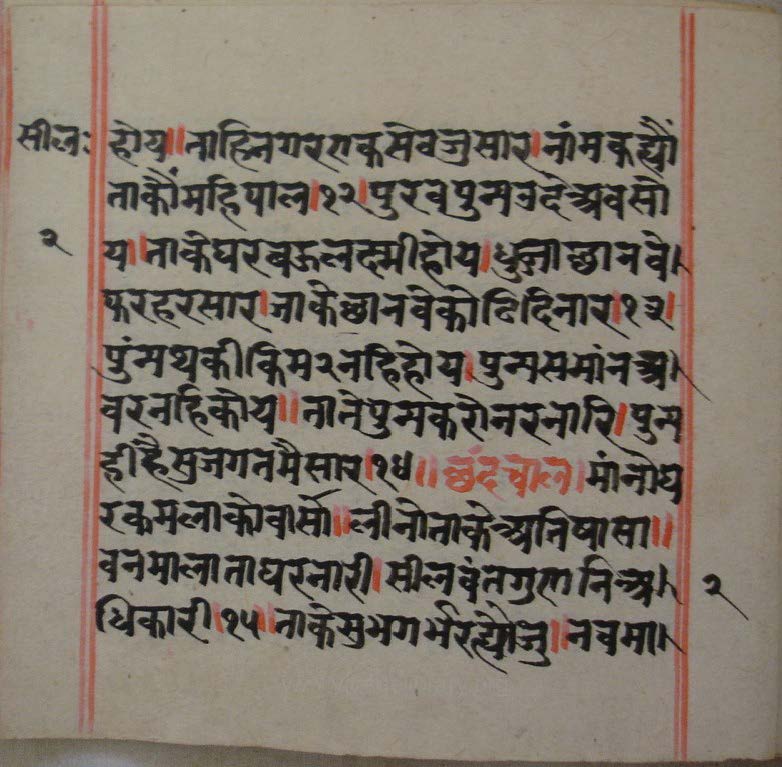 सीलः होय॥ताहिनगरएकसेवजुसार।नांमकह्यौं
ताकौंमहिपाल।१२।पुरवपुन्मउदेअवसो
२ य॥ताकेघरबऊलक्ष्मीहोय।धुजाछानवे।
फरहरसार।जाकेछानवेकोटिदिनार।१३।
पुंन्मथकीकिम२नहिहोय।पुन्मसमांनअ।
वरनहिकोय॥तातेपुन्मकरोनरनारि।पुन्म
हीहैसुजगतमैसार।१४॥छंदचाल।मांनोघ
रकमलाकोवासौ॥लीनोताकेअतिषासा॥
वनमालाताघरनारी।सीलवंतगुणनिअ। २
धिकारी।१५॥ताकेसुभगर्भरह्योजु॥नवमा।